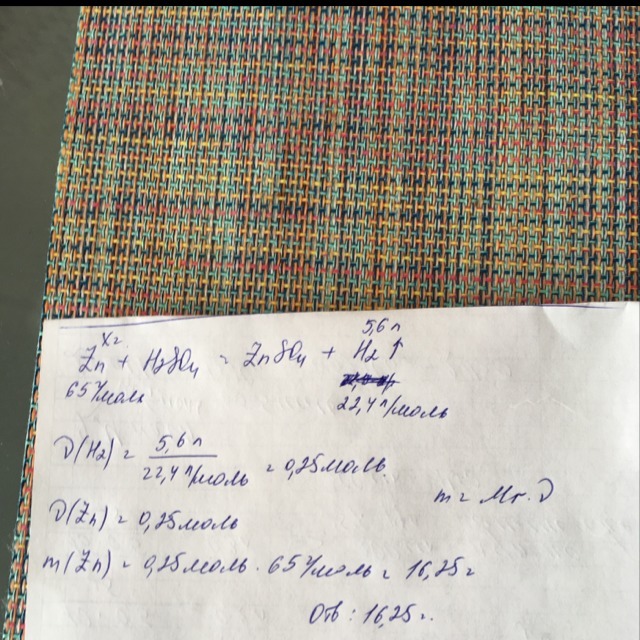 Xг 5,6 л
Zn + H2SO4 = ZnSO4 + H2 ↑
65 г/моль 22,4 л/моль
ν(H2) = 5,6 л / 22,4 л/моль = 0,25 моль
m = Mr · ν
ν(Zn) = 0,25 моль
m(Zn) = 0,25 моль · 65 г/моль = 16,25 г
Отв: 16,25 г.